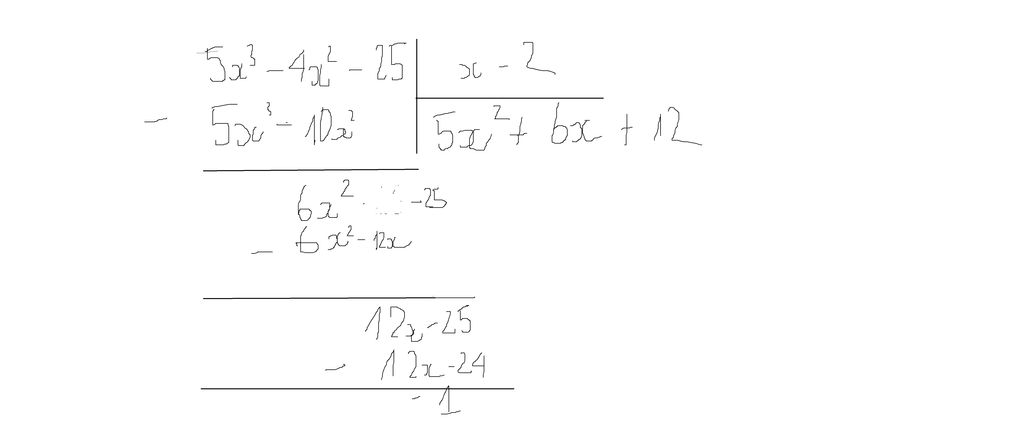 5x³ - 4x² - 25 | x - 2
- 5x³ - 10x² | 5x² + 6x + 12
6x² - 25
- 6x² - 12x
12x - 25
- 12x - 24
- 1